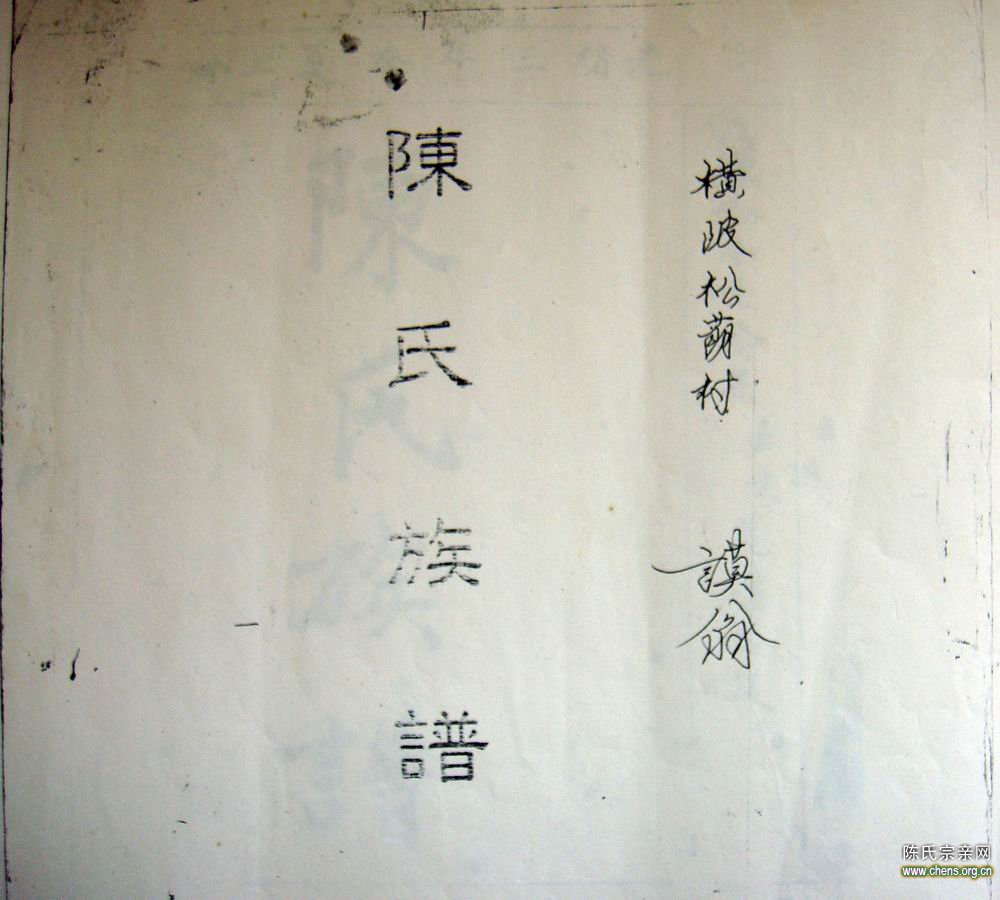 橫陂松蓢村 謨翁
陳氏族譜
陈氏宗亲网
www.chens.org.cn